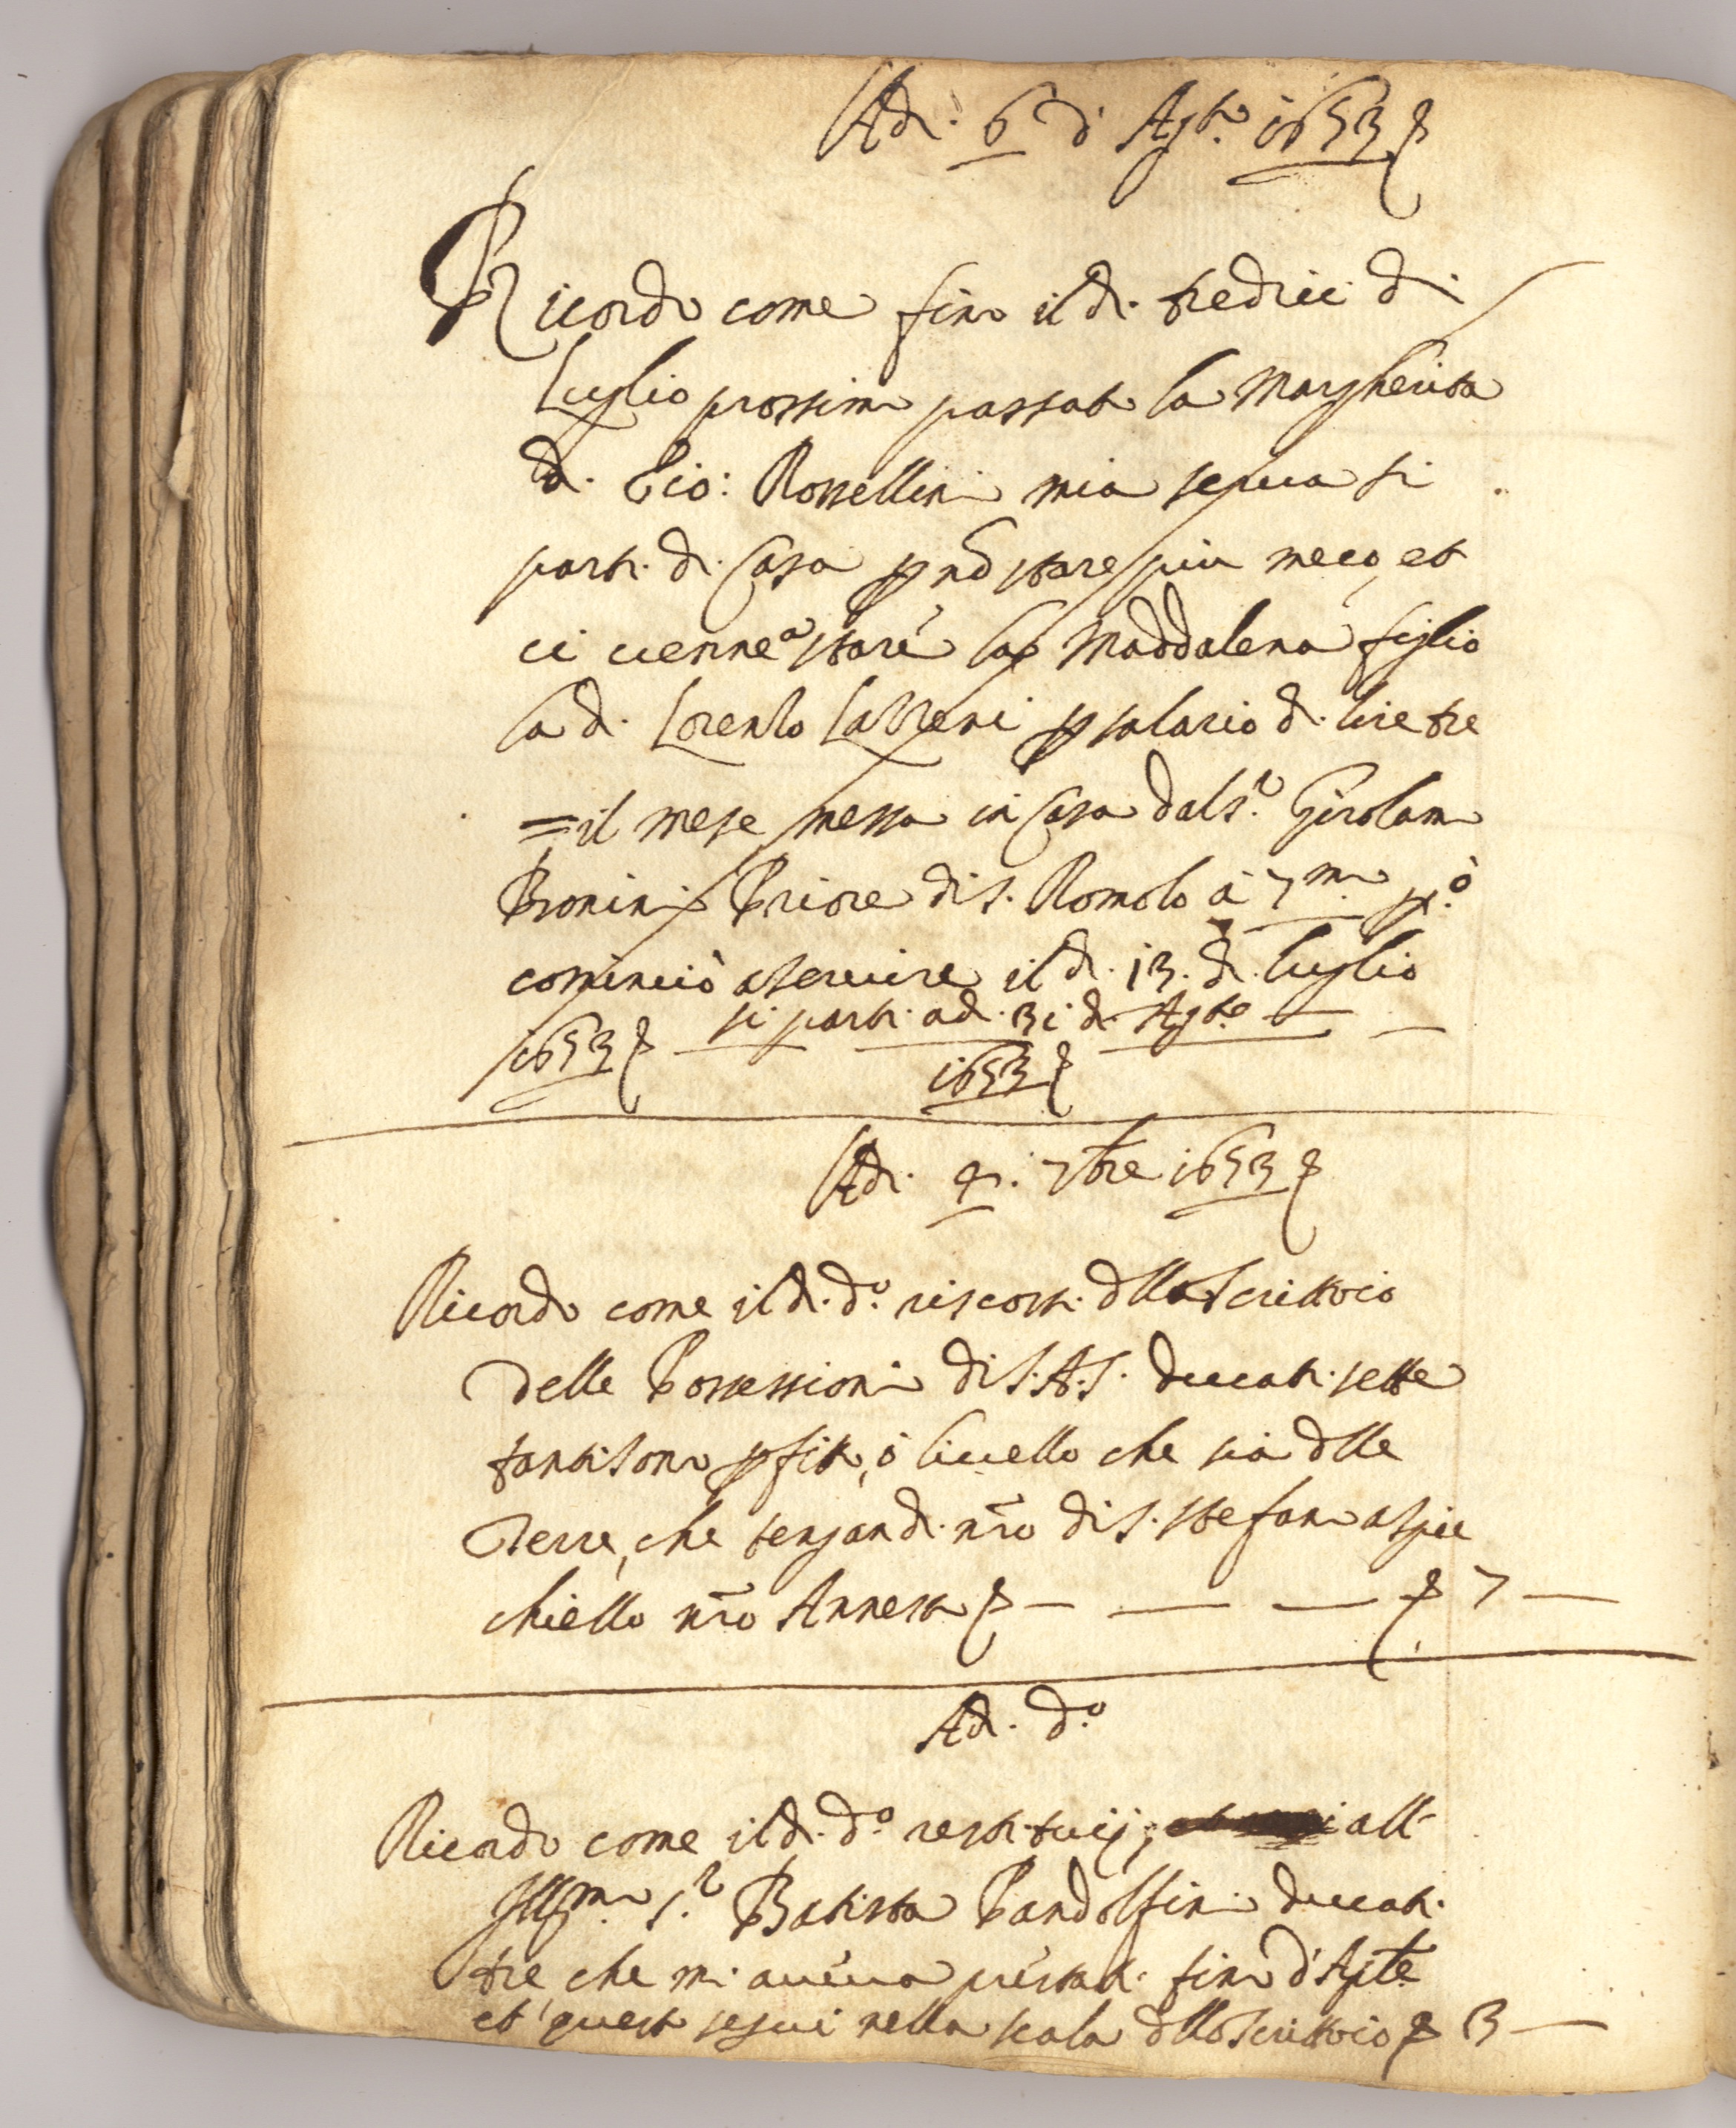 Adi. 6 di Agto. 1653
Ricordo come fino il di. tredici di
Luglio prossimo passato la Margherita
di. Gio: Rossellini mia serua si
parti. di. Casa p nõ stare piu meco, et
ci uenne a stare la Maddalena figlio
la di. Lorenzo p salario di. lire tre
= il mese messa in Casa dal s.r Girolamo
Bonini Priore di S. Romolo à 7.mo p.ò
cominciò a seruire il di. 13. di. luglio
si parti. adi. 31 di. Agto
1653
1653
Adi. 4. 7bre 1653
Ricordo come il di. d.o riscossi. dllo Scrittoio
delle Possessioni di S.A.S. ducati. sette
tanti sono p fitto, ò liuello che sia dlle
Terre, che tengan di. nro di S. Stefano a Spic
chiello nro Annesso 7
Adi. d.o
Ricordo come il di. d.o restituij, all
Ill.mo S.r Batista Pandolfini ducati.
tre, che mi. aueua prestati. fino d'Agto
et questo seguì nella scala dllo Scrittoio 3